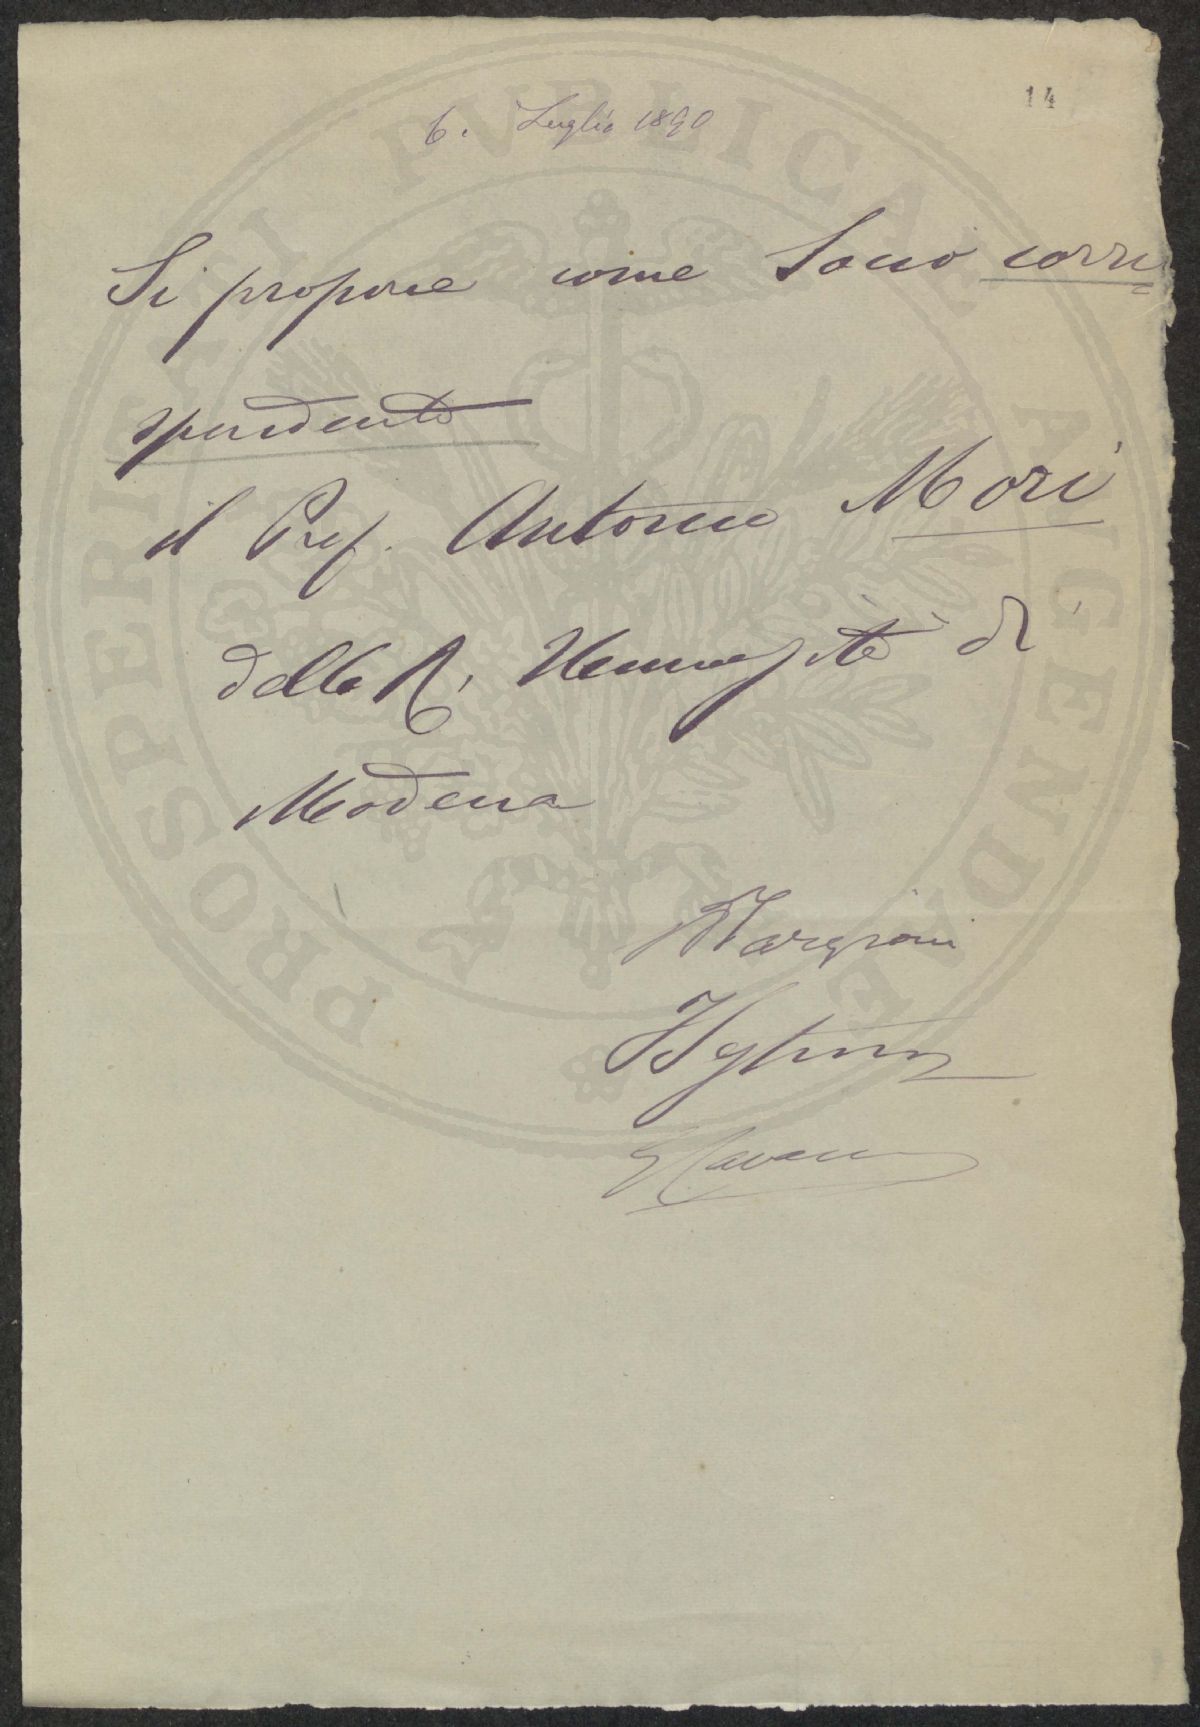 14
6. Luglio 1890
Si propone come Socio corri
spondente
il Prof. Antonio Mori
della R. Università di
Modena
Targioni
PROSPERITATI PVBLICAE AVGENDAE